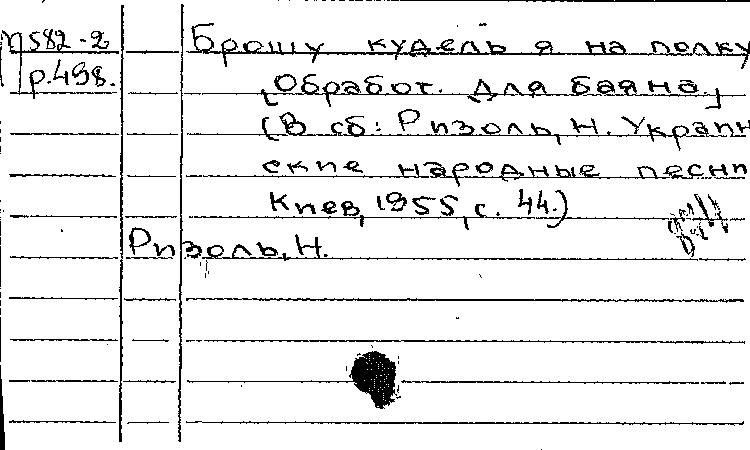 М582-2
р.498.
Брошу кудель я на полку
[Обработ. для баяна.]
(В сб: Ризоль, Н. Украин
ские народные песни
Киев, 1955, с. 44.)
Ризоль, Н.